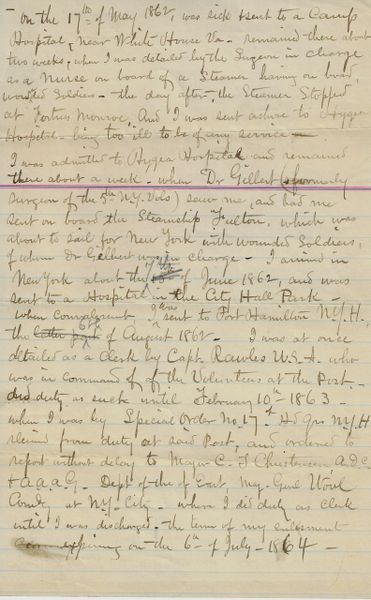 - on the 17th of May 1862, was sick & sent to a Camp
Hospital, Near White House Va - remained there about
two weeks, when I was detailed by the Surgeon in charge
as a Nurse on board of a Steamer having on board
wounded Soldiers - the day after, the Steamer Stopped
at Fortress Monroe, And I was sent ashore to Hygea
Hospital - being too ill to be of any service
I was admitted to Hygea Hospital and remained
there about a week - when Dr Gilbert (formerly
Surgeon of the 5th N.Y. Vols) saw me, and had me
sent on board the Steamship Fulton, which was
about to sail for New York with wounded Soldiers,
of whom Dr Gilbert was in charge - I arrived in
New York about the of June 1862, and was
sent to a Hospital in the City Hall Park -
when convalescent I was sent to Fort Hamilton N.Y.H.,
the 6th of August 1862 - I was at once
detailed as a Clerk by Capt. Rawles U.S.A. who
was in command of of the Volunteers at the Post -
did duty as such until February 10th 1863 -
when I was by Special Order No. 17 Hd Qrs N.Y.H
relieved from duty at said Post, and ordered to
report without delay to Major C. T. Christensen A.D.C.
& a.a.a.G. Dept of the of East, Maj. Genl Wool
Comdg, at N.Y. City - where I did duty as clerk
until I was discharged - the term of my enlistment
expiring on the 6th of July - 1864 -